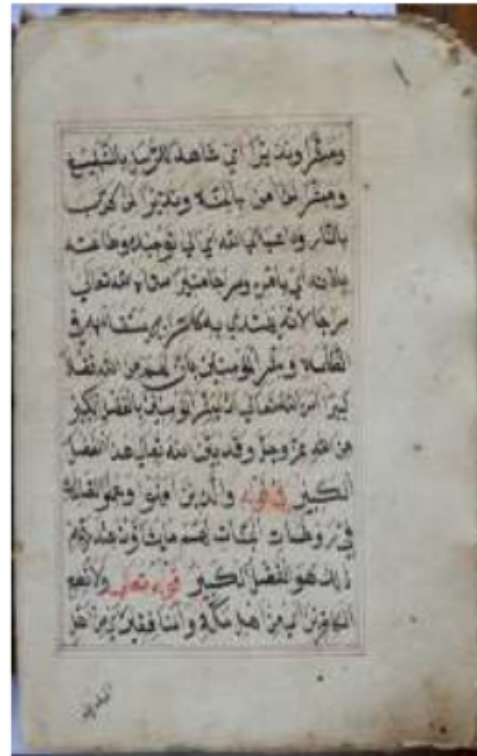 ومبشرا ونذيرا اي شاهدا للرسل بالتبليغ
ومبشرا لمن امن بالجنة ونذيرا لمن كذب
بالنار وداعيا الي الله اي الي توحيده وطاعته
باذنه اي بامره وسراجا منيرا سماه الله تعالي
سراجا لانه يهتدي به كالسراج يستضاء به في
الظلمة وبشر المؤمنين بان لهم من الله فضلا
كبيرا امر الله تعالي ان يبشر المؤمنين بالفضل الكبير
من الله عز وجل وقد بين الله تعالي هذا الفضل
الكبير في قوله والذين امنوا وعملوا الصالحات
في روضات الجنات لهم ما يشاؤن عند ربهم
ذلك هو الفضل الكبير قوله تعالي ولا تطع
الكافرين اي من اهل مكة والمنافقين من اهل